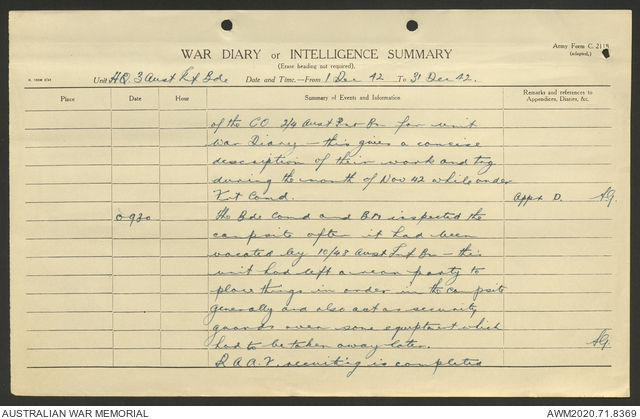 Army Form C. 2118
(adapted.)
WAR DIARY or INTELLIGENCE SUMMARY
(Erase heading not required).
Unit HQ 3 Aust Inf Bde Date and Time.—From 1 Dec 42 To 31 Dec 42.
Place Date Hour Summary of Events and Information Remarks and references to Appendices, Diaries, &c.
of the CO 2/4 Aust Pnr Bn for unit
War Diary – this gives a concise
description of their work and trg
during the month of Nov 42 while under
Comd. Appx D.
0930 The Bde Comd and BM inspected the
campsite after it had been
vacated by 10/48 Aust Inf Bn – this
unit had left a rear party to
place things in order in the campsite
generally and also act as security
guards over some equipt which
had to be taken away later.
R A A F. recruiting is completed
AUSTRALIAN WAR MEMORIAL
AWM2020.71.8369